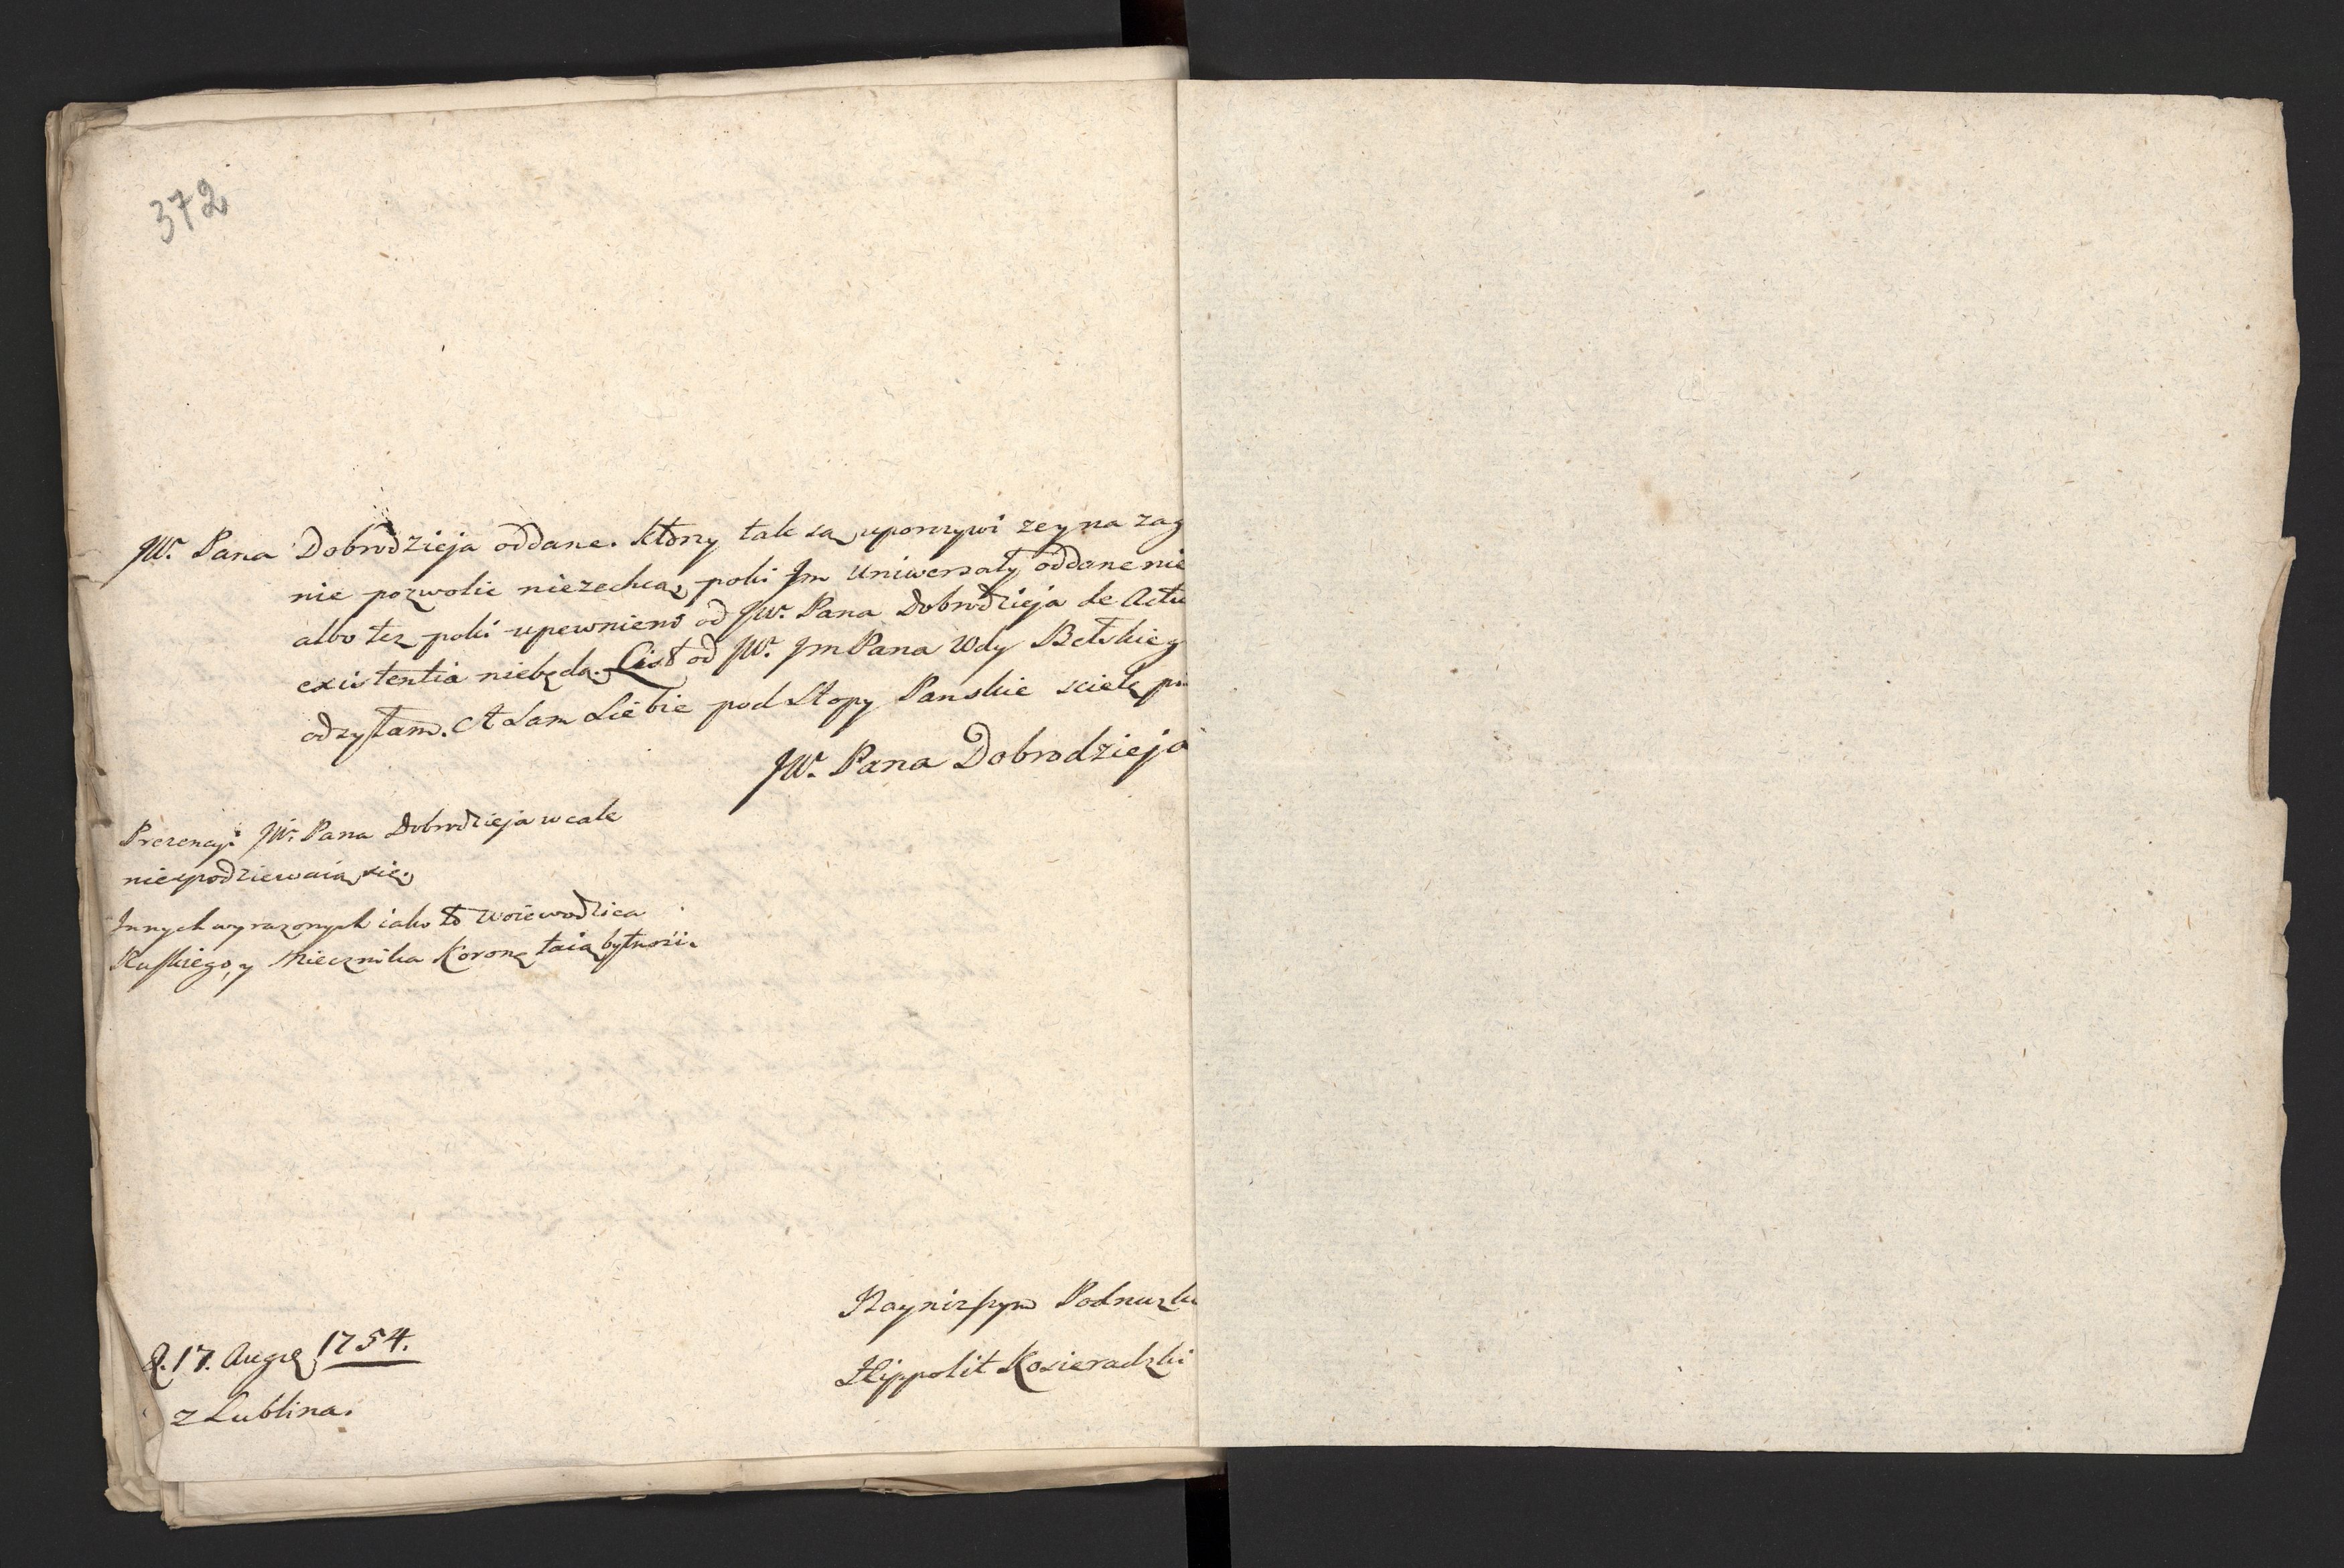 372
JW. Pana Dobrodzieja oddane. Ktorzy tak są uporczywi zey na zag
nie pozwolić niezechcą, poki Im Uniwersały oddane nie
albo tez poki upewnieni od JW. Pana Dobrodzieja de Actu
existentia niebędą. List od JW. Jm Pana Wdy Bełskieg
odsyłam. A sam siebie pod stopy Panskie scielę
JW. Pana Dobrodzieja
Prezencyi JW. Pana Dobrodzieja wcale
niespodziewaią się.
Innych wyrazonych iako to Woiewodzica
Ruskiego, y Miecznika Koron taią bytność.
Nayniższym Podnuzki
Hippolit Kosieradzki
D. 17. Aug 1754.
z Lublina.